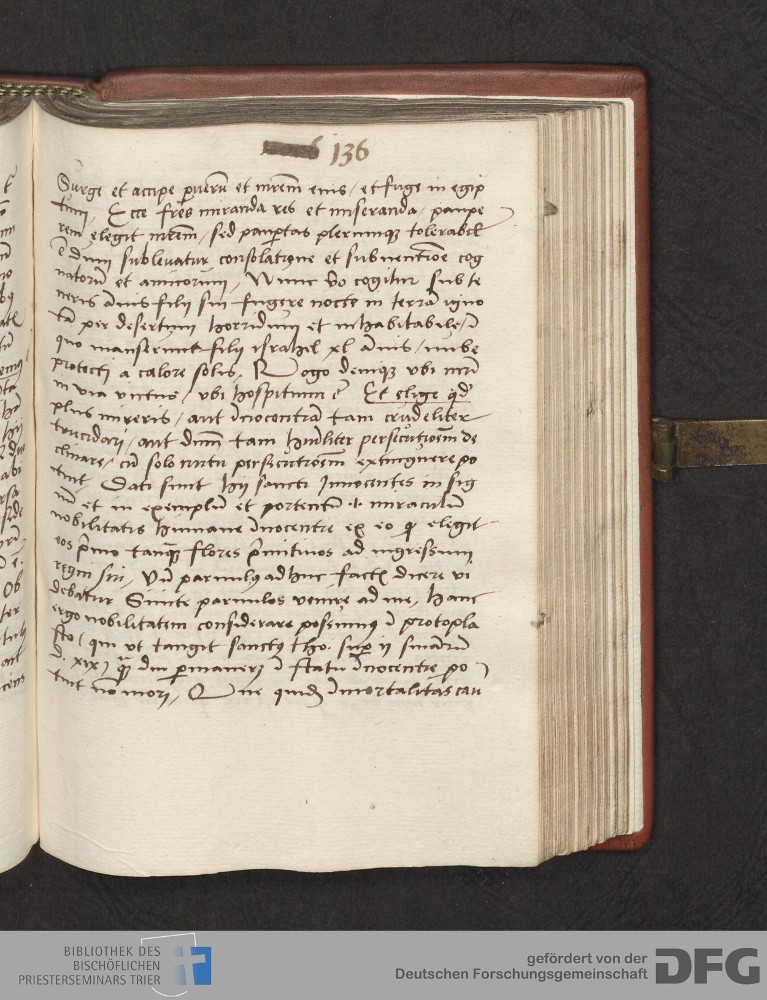 136
Surge et accipe puerū et mrēm eius / et fuge in egip
tum, Ecce frēs miranda res et miseranda / paupe
rem elegit mrēm / sed paup̄tas plerumqꝫ tolerabil
ē dum sublevatur consolatione et subventiōe cog
natorū et amicorum, Nunc v̄o cogitur sub te
neris ānis filij sui fugere nocte in terrā igno
tā per desertum horridum et inhabitabile / ī
quo manserunt filij israhel xl ānis / nube
protecti a calore solis, Rogo deniqꝫ vbi
in via victus / vbi hospitium ē Et elige qd̄
plus mireris / aut īnocentiā tam crudeliter
trucidari / aut dn̄m tam hum̄liter persecutiōem de
clinare / cū solo nutu persecutiōem extinguere po
tuit Dati sunt hij sancti Innocentes in sig
nū et in exemplū et portentū + miraculū
nobilitatis humane īnocentie ex eo qꝫ elegit
eos p̄mo tamq̄ꝫ flores p̄mitiuos ad ingressum
regni sui, Vn̄ paruulus adhuc dicere vi
debatur Sinite paruulos venire ad me, Hanc
ergo nobilitatem considerare possumus ī protopla
sto (qui vt tangit sanctus tho. sup ij
d. xix) q̄ꝫ diu p̄maneret ī statu īnocentie po
tuit nō mori, Que quidē īmortalitas cau
BIBLIOTHEK DES
BISCHÖFLICHEN
PRIESTERSEMINARS TRIER
gefördert von der
Deutschen Forschungsgemeinschaft
DFG